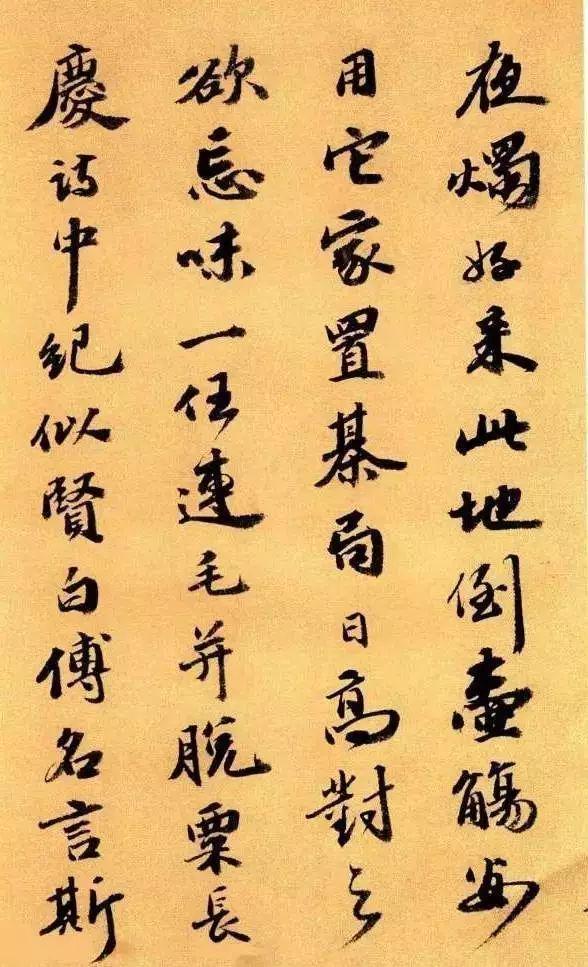 夜燭好来此地倒壺觴毋
用它家置棊局日高對之
欲忘味一任連毛并脫粟長
慶詩中紀似賢白傅名言斯